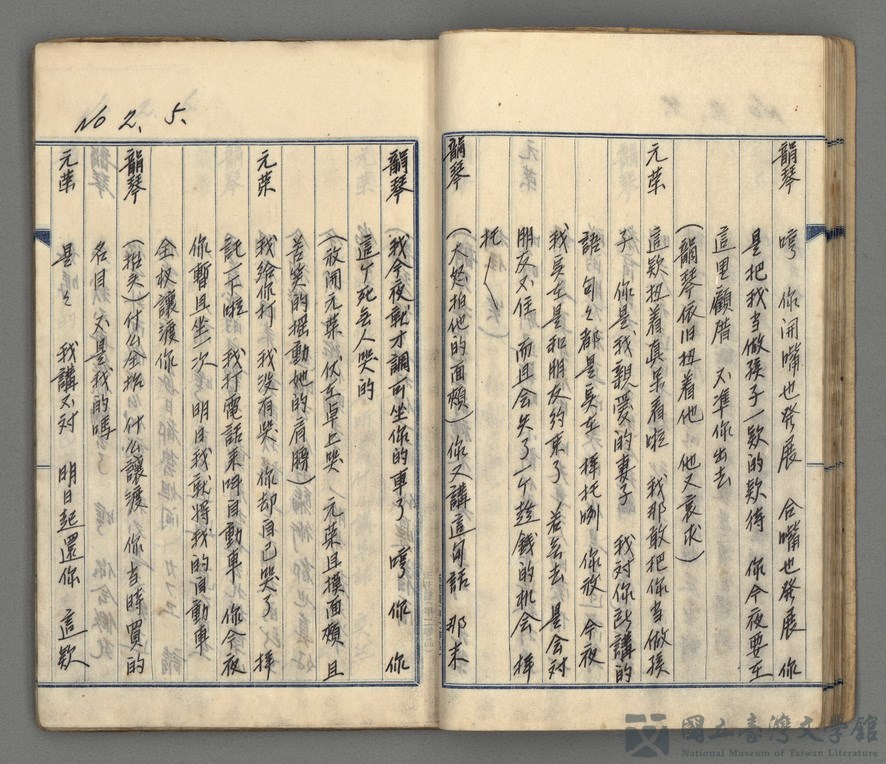 韻琴 哼 你開嘴也發展 合嘴也發展 你
是把我当做孩子一欵的欵待 你今夜要在
這里顧厝 不準你出去
(韻琴依旧扭着他 他又哀求)
元葉 這欵扭着真呆看啦 我那敢把你当做孩
子 你是我親愛的妻子 我対你所講的
語 句々都是実在 拝托咧 你放一 今夜
我実在是和朋友約束了 若無去 是会対
朋友不住 而且会失了一个趁錢的机会 拝
托〱
韻琴 (大怒拍他的面頰) 你又講這句話 那末
韻琴 我今夜就才調可坐你的車了 哼 你 你
這个死無人哭的
(放開元葉 伏在卓上哭 元葉且摸面頰 且
苦笑的摇動她的肩膀)
元葉 我給你打 我没有哭 你却自己哭了 拝
託一下啦 我打電話来呼自動車 你今夜
你暫且坐一次 明日我就将我的自動車
全权讓渡你
韻琴 (抬头) 什么全拾 什么讓渡 你当時買的
名目 不是我的嗎
元葉 是々 我講不対 明日起還你 這欵
No 2. 5.
國立臺灣文學館
National Museum of Taiwan Literature